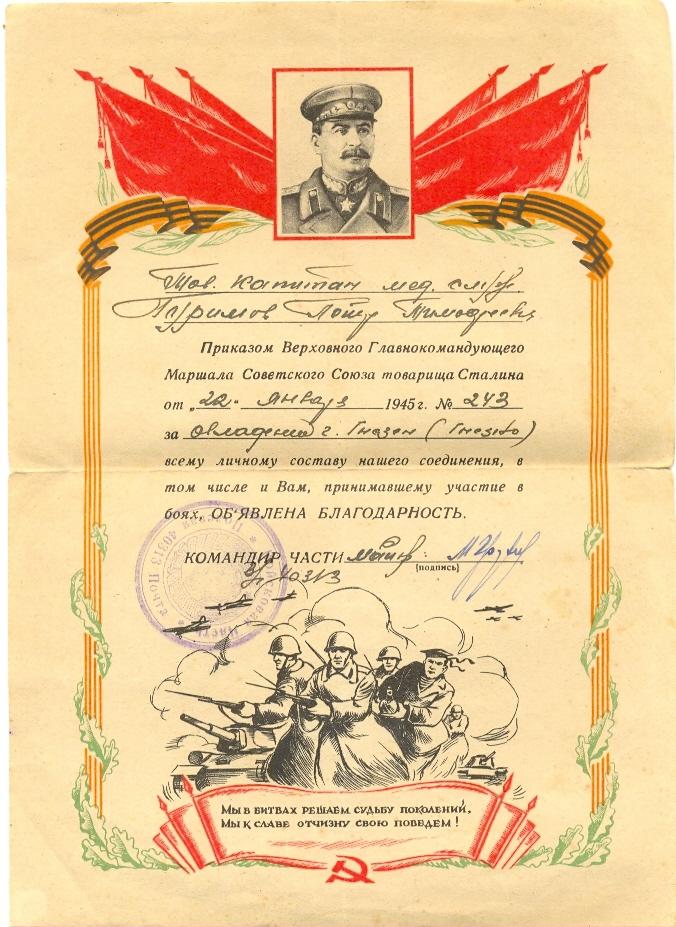 Тов. капитан мед. служ.
Пётр Тимофеевич
Приказом Верховного Главнокомандующего
Маршала Советского Союза товарища Сталина
от „22" января 1945 г. № 243
за овладение г. Гнезен (Гнезно)
всему личному составу нашего соединения, в
том числе и Вам, принимавшему участие в
боях, ОБ'ЯВЛЕНА БЛАГОДАРНОСТЬ.
КОМАНДИР ЧАСТИ майор
(подпись)
40313
Войсковая часть Полевая почта 40313
МЫ В БИТВАХ РЕШАЕМ СУДЬБУ ПОКОЛЕНИЙ,
МЫ К СЛАВЕ ОТЧИЗНУ СВОЮ ПОВЕДЕМ!